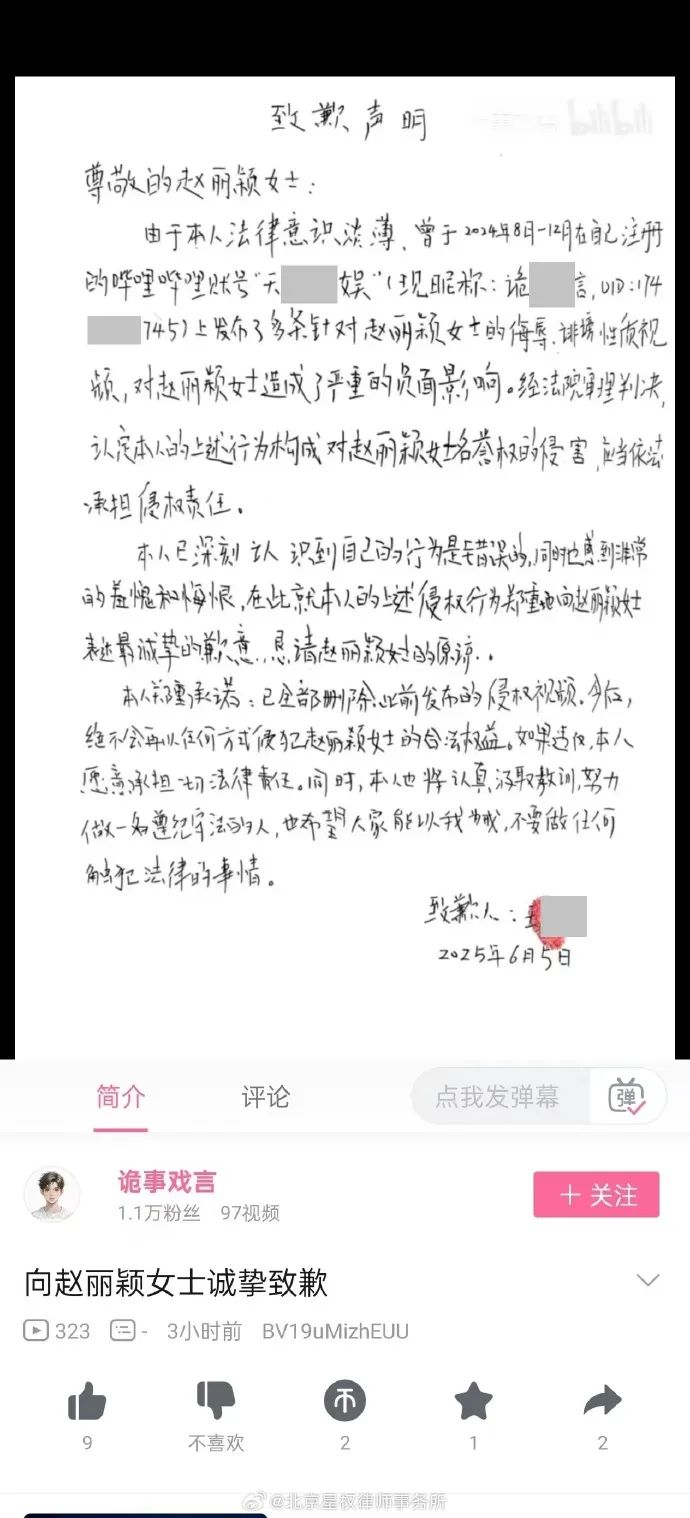 致歉声明
尊敬的赵丽颖女士：
由于本人法律意识淡薄，曾于2024年8月-12月在自己注册
的哔哩哔哩账号“天 娱”（现昵称：诡 言，UID：174
745）上发布了多条针对赵丽颖女士的侮辱、诽谤性质视
频，对赵丽颖女士造成了严重的负面影响。经法院审理判决，
认定本人的上述行为构成对赵丽颖女士名誉权的侵害，应当依法
承担侵权责任。
本人已深刻认识到自己的行为是错误的，同时也感到非常
的羞愧和悔恨，在此就本人的上述侵权行为郑重地向赵丽颖女士
表达最诚挚的歉意，恳请赵丽颖女士的原谅。
本人郑重承诺：已全部删除此前发布的侵权视频。今后，
绝不会再以任何方式侵犯赵丽颖女士的合法权益。如果违反，本人
愿意承担一切法律责任。同时，本人也将认真汲取教训，努力
做一名遵纪守法的人，也希望大家能以我为戒，不要做任何
触犯法律的事情。
致歉人：王
2025年6月5日
简介 评论 点我发弹幕 弹
诡事戏言
1.1万粉丝 97视频
＋ 关注
向赵丽颖女士诚挚致歉
323 - 3小时前 BV19uMizhEUU
9 不喜欢 2 1 2
@北京星权律师事务所